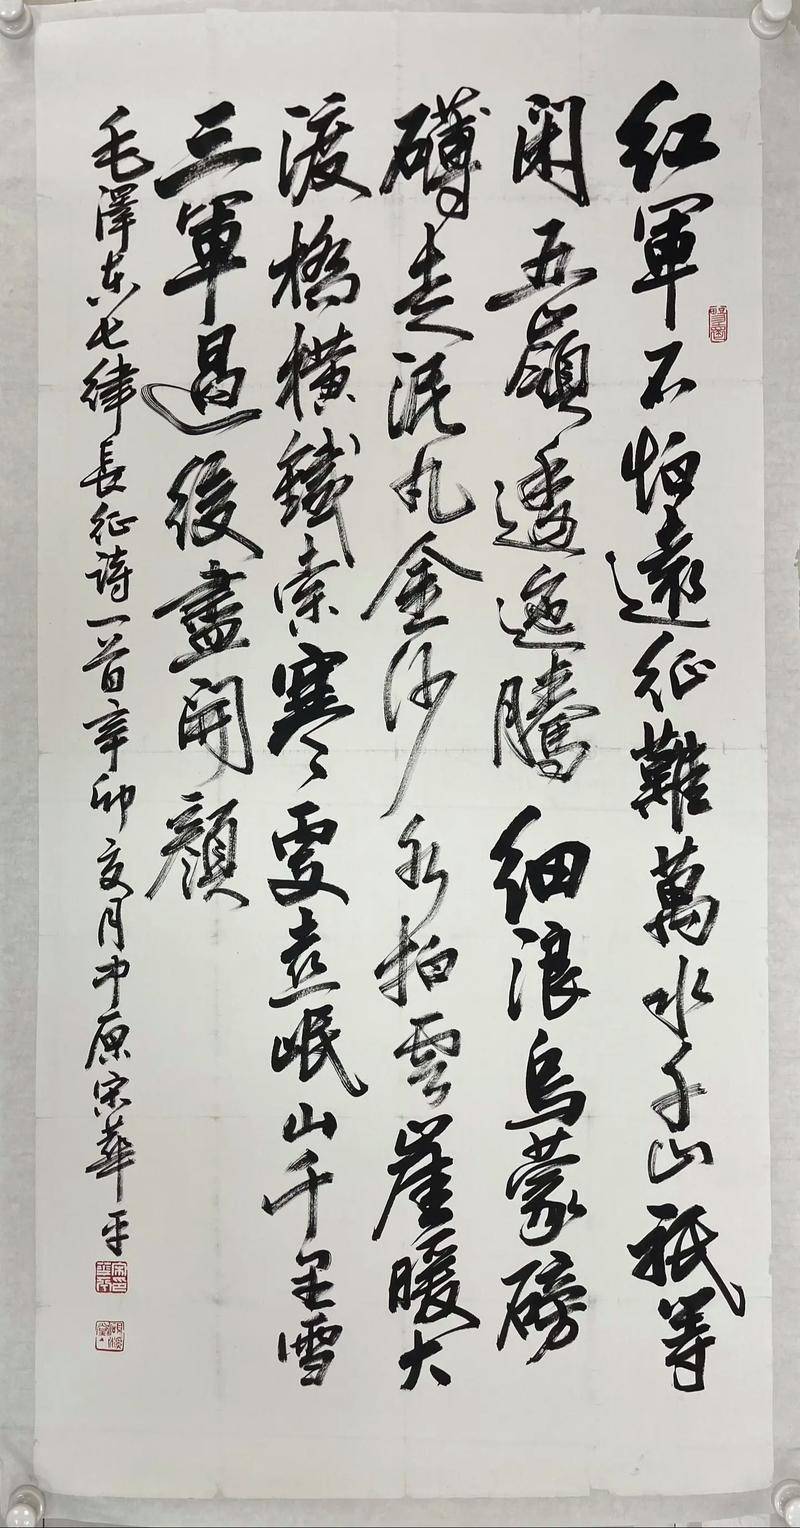 紅軍不怕遠征難萬水千山祇等
閑五嶺逶迤騰細浪烏蒙磅
礴走泥丸金沙水拍雲崖暖大
渡橋橫鐵索寒更喜岷山千里雪
三軍過後盡開顏
毛澤東七律長征詩一首辛卯夏月中原宋華平